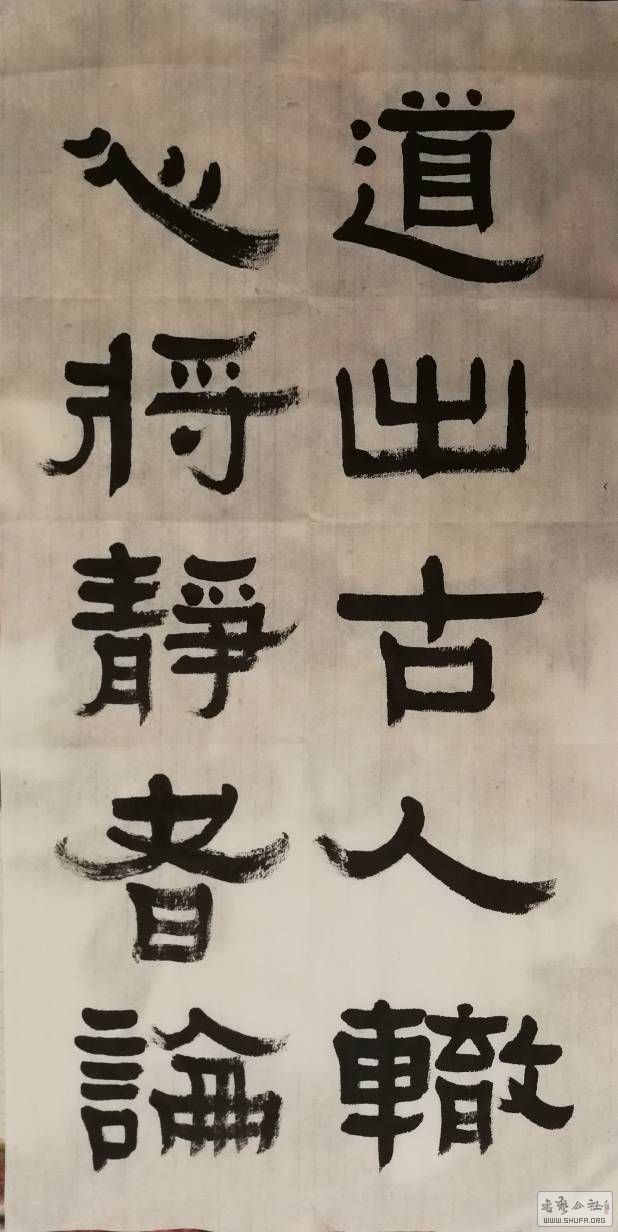 道出古人轍
心將靜者論
書藝公社
WWW.SHUFA.ORG